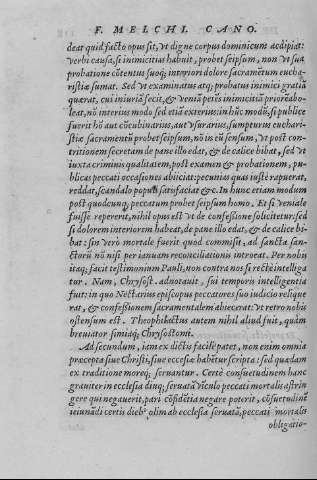 F. MELCHI. CANO.
deat quid facto opus sit, vt digne corpus dominicum accipiat:
verbi causa, si inimicitias habuit, probet seipsum, non vt sua
probatione cõtentus suoq; interiori dolore sacramẽtum eucha-
ristiæ sumat. Sed vt examinatus atq; probatus inimici gratiã
quærat, cui iniuriã fecit, & veniã pe inimicitiã
let, nõ interius modo sed etiã exterius: in hũc modũ, si publice
fuerit hõ aut cõcubinarius, aut vsurarius, sumpturus euchari-
stiæ sacramentũ probet seipsum, nõ in eũ sensum, vt post con-
tritionem secretam de pane illo edat, & de calice bibat, sed vt
iuxta criminis qualitatem, post examen & probationem, pu-
blicas peccati occasiones abiiciat: pecunias quas iuste rapuerat,
reddat, scandalo populi satisfaciat &c. In hunc etiam modum
post quodcunq; peccatum probet seipsum homo. Et si veniale
fuisse repererit, nihil opus est vt de confessione solicitetur: sed
si dolorem interiorem habeat, de pane illo edat, & de calice bi-
bat: sin verò mortale fuerit quod commisit, ad sancta san-
ctorũ nõ nisi per ianuam reconciliationis introeat. Per nobis
itaq; facit testimonium Pauli, non contra nos si recte intelliga
tur. Nam, Chrysost. aduotauit, sui temporis intelligentia
fuit: in quo Nectarius episcopus peccatores suo iudicio relique
rat, & confessionem sacramentalem abiecerat: vt retro nobis
ostensum est. Theophilactus autem nihil aliud fuit, quàm
breuiator simiáq; Chrysostomi.
Ad secundum, iam ex dictis facile patet, non enim omnia
præcepta siue Christi, siue ecclesiæ habẽtur scripta: sed quædam
ex traditione moreq; seruantur. Certè consuetudinem hanc
grauiter in ecclesia diuq; seruatã vinculo peccati mortalis astrin
gere qui negauerit, pari cõfidẽtia negare poterit, cõsuetudinẽ
ieiunãdi certis dieb' olim ab ecclesia seruatã, peccati mortalis
obligatio-